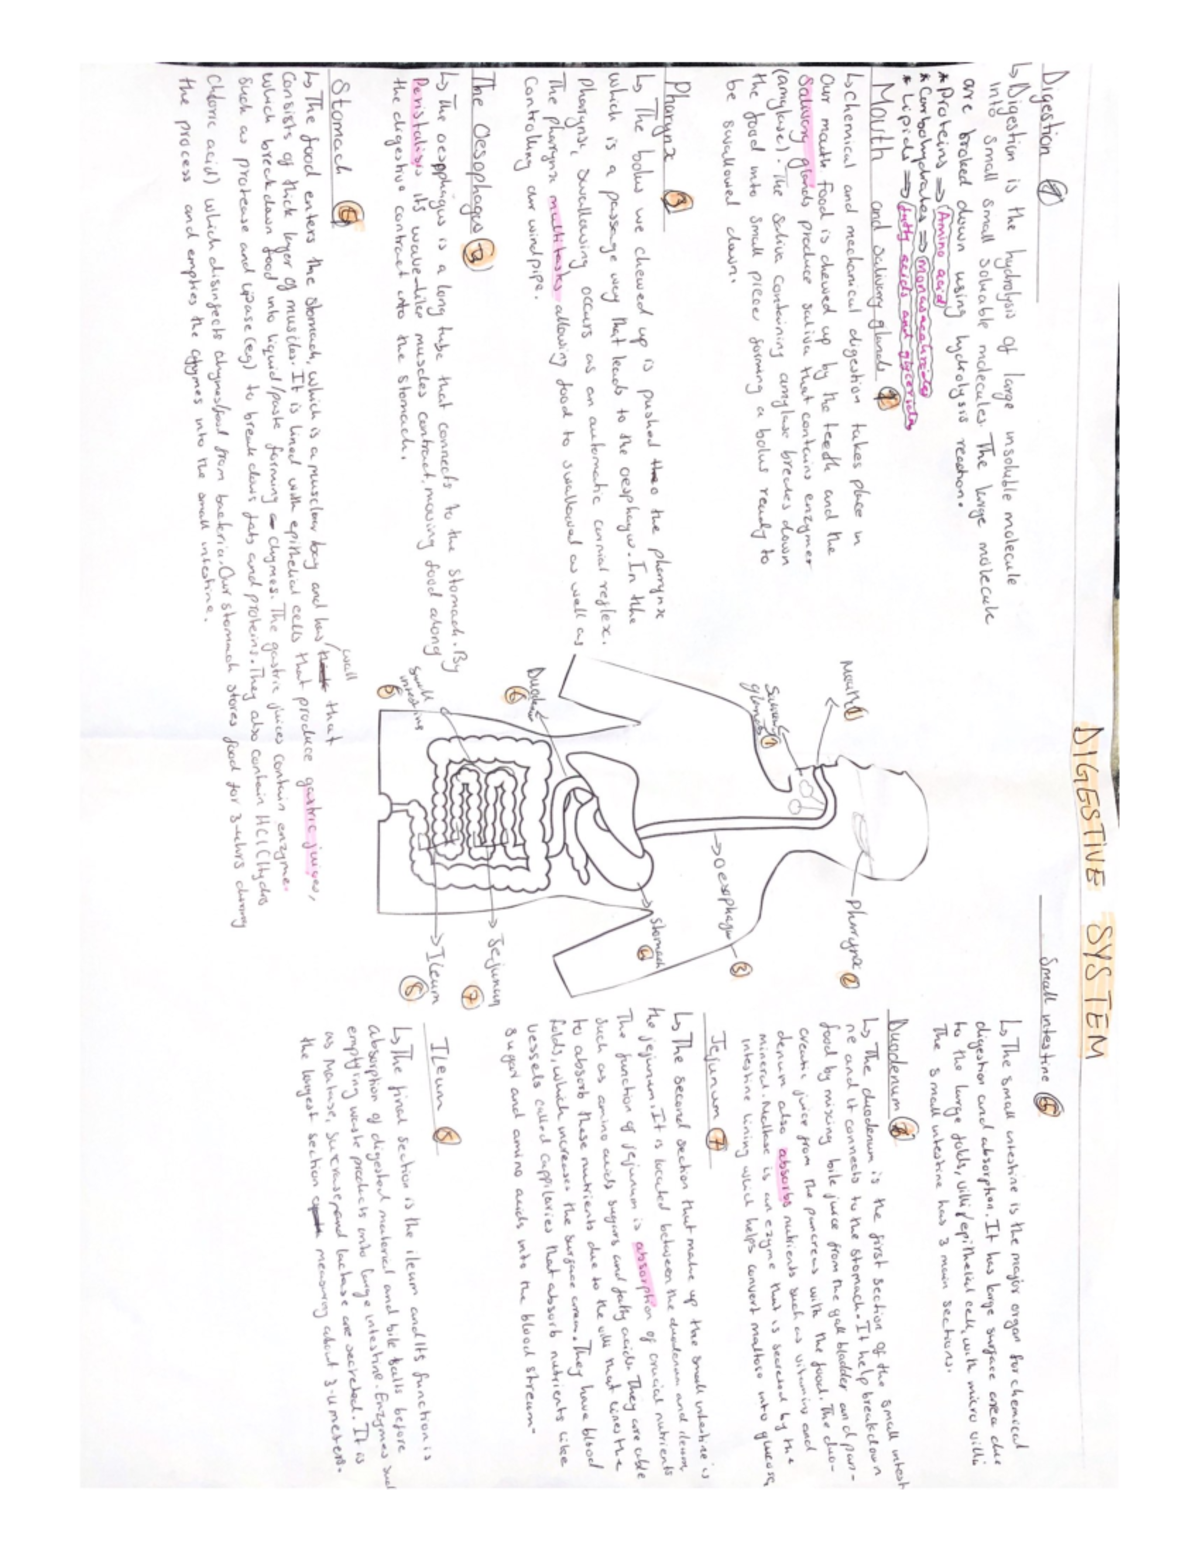 DIGESTIVE SYSTEM
Digestion 1
↳ Digestion is the hydrolysis of large insoluble molecule
into small small soluable molecules. The large molecule
are broked down using hydrolysis reaction.
* Proteins ⇒ Amino acid
* Carbohydrates ⇒ monosaccharides
* Lipids ⇒ fatty acids and glycerids
Mouth and salivary glands
↳ Chemical and mechanical digestion takes place in
our mouth food is chewed up by the teeth and the
Salivary glands produce saliva that contains enzymes
(amylase). The saliva containing amylase breakes down
the food into small pieces forming a bolus ready to
be swallowed down.
Pharynx 3
↳ The bolus we chewed up is pushed to the pharynx
which is a passage way that leads to the oesphagus. In the
pharynx, swallowing occurs as an automatic cranial reflex.
The pharynx multitasks allowing food to swallowed as well as
controlling our windpipe.
The Oesophagus
↳ The oesphagus is a long tube that connects to the stomach. By
Peristalisis its wave-like muscles contract, moving food along
the digestive contract into the stomach.
Stomach
↳ The food enters the stomach, which is a muscular bag and has wall that
consists of thick layer of muscles. It is lined with epithelial cells that produce gastric juices,
which break down food into liquid/paste forming chymes. The gastric juices contain enzyme
such as protease and lipase (eg) to break down fats and proteins. They also contain HCl (Hydro
chloric acid) which disinfects chymes/food from bacteria. Our stomach stores food for 3-4hrs during
the process and empties the chymes into the small intestine.
Mouth 1
Salivary
glands 1
pharynx 2
Oesophagus 3
Stomach
Duodenum 6
Small
intestine 5
Jejunum 7
Ileum 8
Small intestine
↳ The small intestine is the major organ for chemical
digestion and absorption. It has large surface area due
to the large folds, villi/epithelial cell with micro villi
The small intestine has 3 main sections.
Duodenum
↳ The duodenum is the first section of the small intest
ne and it connects to the stomach. It help breakdown
food by mixing bile juice from the gall bladder and pan-
creatic juice from the pancreas with the food. The duo-
denum also absorbs nutrients such as vitamins and
mineral. Maltase is an enzyme that is secreted by the
intestine lining which helps convert maltose into glucose
Jejunum 7
↳ The second section that make up the small intestine is
the jejunum. It is located between the duodenum and ileum
The function of jejunum is absorption of crucial nutrients
such as amino acids sugars and fatty acids. They are able
to absorb these nutrients due to the villi that lines the
folds, which increases the surface area. They have blood
vessels called capillaries that absorb nutrients like
sugar and amino acids into the blood stream.
Ileum 8
↳ The final section is the ileum and its function is
absorption of digested material and bile salts before
emptying waste products into large intestine. Enzymes such
as maltase, sucrase and lactase are secreted. It is
the longest section measuring about 3-4 meters.